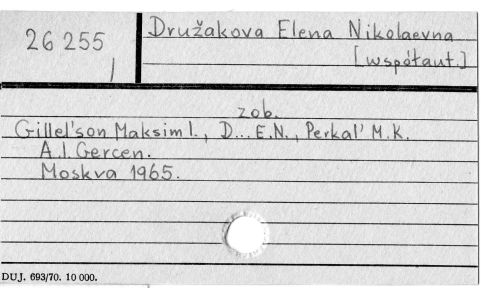 26 255
Družakova Elena Nikolaevna
[współaut.]
zob.
Gillel'son Maksim I., D... E.N., Perkal' M.K.
A.I. Gercen.
Moskva 1965.
DUJ. 693/70. 10 000.